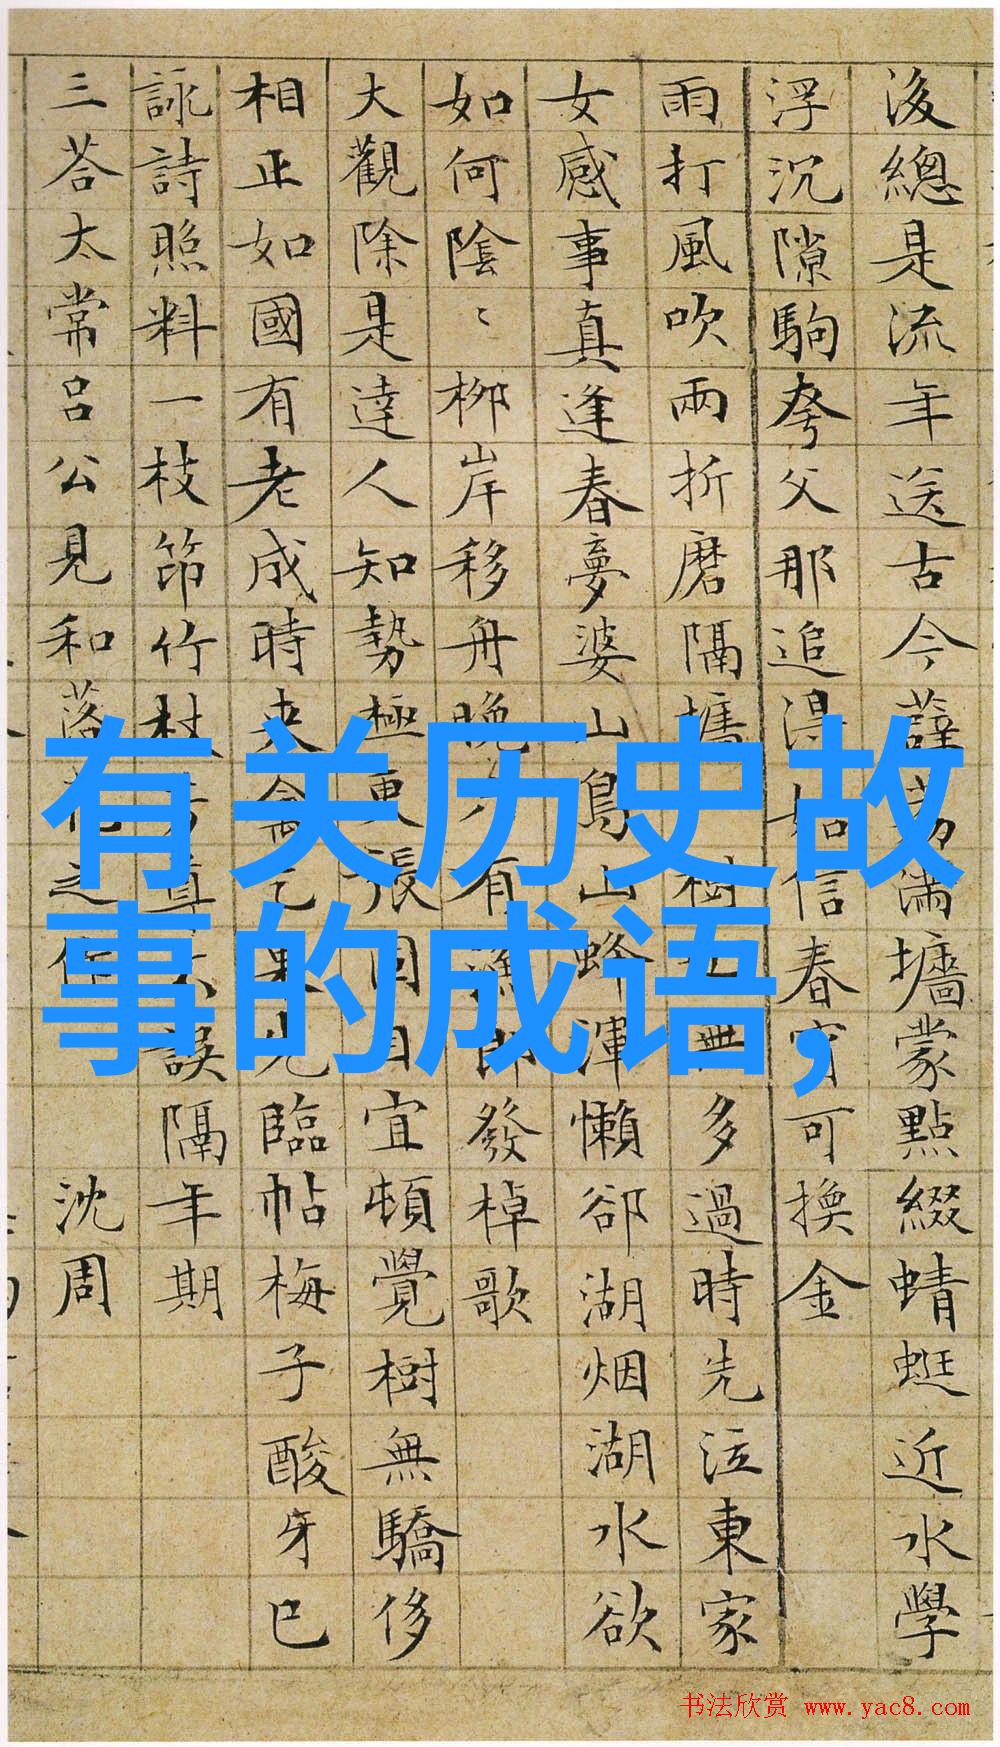 後總是流年送古今薜滿墻蒙點綴蜻蜓近水學
浮沉隙駒夸父那追淂如信春宵可換金
雨打風吹兩折磨隔墻樹無多過時先泣東家
女感事真逢春夢婆山鳥山蜂渾懶卻湖烟湖水欲
如何陰〻柳岸移舟晚有郎發棹歌
大觀除是達人知勢極更張回自宜頓覺樹無驕侈
相正如國有老成時先臨帖梅子酸牙已
詠詩照料一枝笻竹杖真誤隔年期
三荅太常呂公見和落花之作 沈周
有关历史故
事的成语,
书法欣赏 www.yac8.com